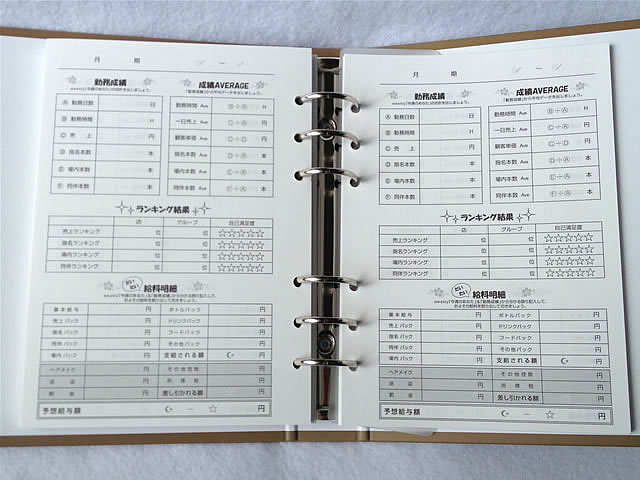 月 期 / ～ /
勤務成績
weekly「今週のあなた」の合計を出しましょう。
Ⓐ 勤務日数 日
Ⓑ 勤務時間 H
Ⓒ 売 上 円
Ⓓ 指名本数 本
Ⓔ 場内本数 本
Ⓕ 同伴本数 本
成績AVERAGE
「勤務成績」から平均データを出しましょう。
勤務時間 Ave Ⓑ÷Ⓐ H
一日売上 Ave Ⓒ÷Ⓐ 円
顧客単価 Ave Ⓒ÷Ⓓ 円
指名本数 Ave Ⓓ÷Ⓐ 本
場内本数 Ave Ⓔ÷Ⓐ 本
同伴本数 Ave Ⓕ÷Ⓐ 本
ランキング結果
店 グループ 自己満足度
売上ランキング 位 位 ☆☆☆☆☆
指名ランキング 位 位 ☆☆☆☆☆
場内ランキング 位 位 ☆☆☆☆☆
同伴ランキング 位 位 ☆☆☆☆☆
だいたい 給料明細
weekly「今週のあなた」&「勤務成績」から分かる額を割り記入して、
基本給与 円 ボトルバック 円
売上 バック 円 ドリンクバック 円
指名 バック 円 フードバック 円
同伴 バック 円 その他バック 円
場内 バック 円 支給される額 ☪ 円
ヘアメイク 円 その他控除 円
送 迎 円 所 得 税 円
罰 金 円 差し引かれる額 ☆ 円
予想給与額 ☪ － ☆ 円
月 期 / ～ /
勤務成績
weekly「今週のあなた」の合計を出しましょう。
Ⓐ 勤務日数 日
Ⓑ 勤務時間 H
Ⓒ 売 上 円
Ⓓ 指名本数 本
Ⓔ 場内本数 本
Ⓕ 同伴本数 本
成績AVERAGE
「勤務成績」から平均データを出しましょう。
勤務時間 Ave Ⓑ÷Ⓐ H
一日売上 Ave Ⓒ÷Ⓐ 円
顧客単価 Ave Ⓒ÷Ⓓ 円
指名本数 Ave Ⓓ÷Ⓐ 本
場内本数 Ave Ⓔ÷Ⓐ 本
同伴本数 Ave Ⓕ÷Ⓐ 本
ランキング結果
店 グループ 自己満足度
売上ランキング 位 位 ☆☆☆☆☆
指名ランキング 位 位 ☆☆☆☆☆
場内ランキング 位 位 ☆☆☆☆☆
同伴ランキング 位 位 ☆☆☆☆☆
だいたい 給料明細
基本給与 円 ボトルバック 円
売上 バック 円 ドリンクバック 円
指名 バック 円 フードバック 円
同伴 バック 円 その他バック 円
場内 バック 円 支給される額 ☪ 円
ヘアメイク 円 その他控除 円
送 迎 円 所 得 税 円
罰 金 円 差し引かれる額 ☆ 円
予想給与額 ☪ － ☆ 円